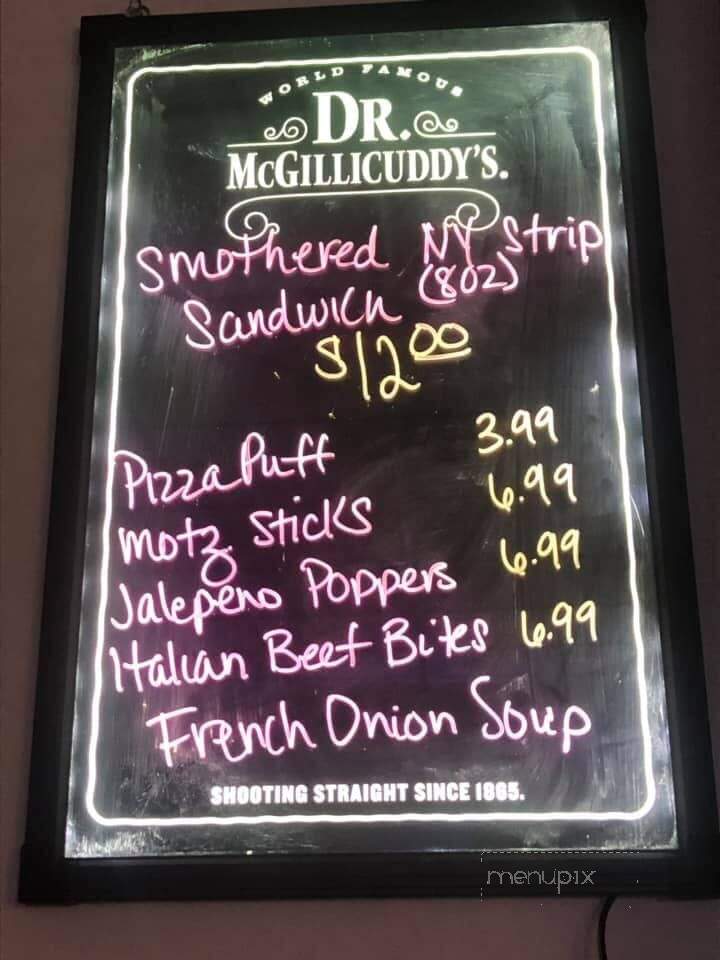 WORLD FAMOUS
DR.
McGILLICUDDY'S.
Smothered NY Strip
Sandwich (8oz)
$12.00
Pizza Puff 3.99
Motz Sticks 6.99
Jalepeno Poppers 6.99
Italian Beef Bites 6.99
French Onion Soup
SHOOTING STRAIGHT SINCE 1865.
menupix